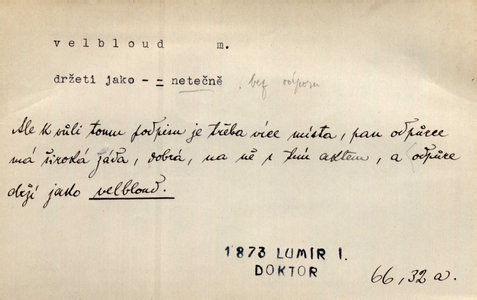 velbloud m.
držeti jako - - netečně, bez odporu
Ale k vůli tomu podpisu je třeba více místa, pan odpůrce
má široká záda, dobrá, na ně s tím aktem, a odpůrce
drží jako velbloud.
1873 LUMÍR I.
DOKTOR
66, 32 a.